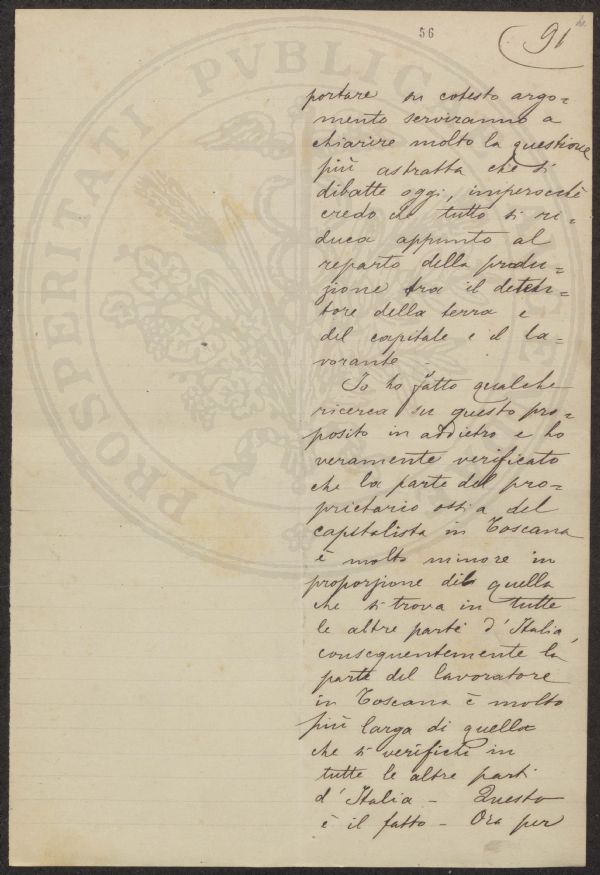 56
91
portare in cotesto argo=
mento serviranno a
chiarire molto la questione
più astratta che si
dibatte oggi, imperocchè
credo che tutto si ri=
duca appunto al
reparto della produ=
zione tra il deten=
tore della terra e
del capitale e il la=
vorante.
Io ho fatto qualche
ricerca su questo pro=
posito in addietro e ho
veramente verificato
che la parte del pro=
prietario ossia del
capitalista in Toscana
è molto minore in
proporzione di quella
che si trova in tutte
le altre parti d'Italia,
conseguentemente la
parte del lavoratore
in Toscana è molto
più larga di quella
che si verifichi in
tutte le altre parti
d'Italia - Questo
è il fatto - Ora per
PROSPERITATI PVBLICAE